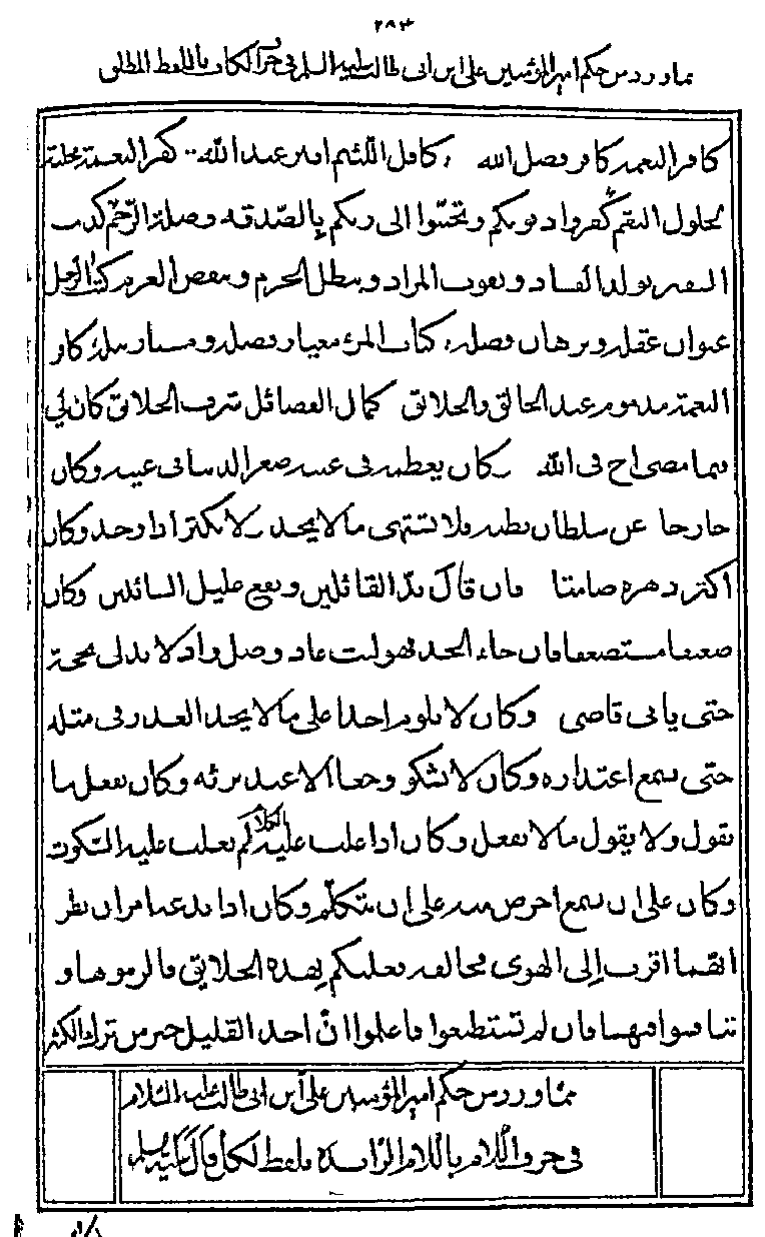 ٢٨٣
مما ورد من حكم امير المؤمنين علي ابن ابي طالب عليه السلم في حرف الكاف باللفظ المطلق
كافر النعمة كافر فضل الله كافل اليتيم اثير عند الله كفر النعمة مجلبة
لحلول النقم كفروا ذنوبكم وتحببوا الى ربكم بالصدقة وصلة الرحم كذب
السفير يولد الفساد ويفوت المراد ويبطل الحزم وينقض العزم كتاب الرجل
عنوان عقله وبرهان فضله كتاب المرء معيار فضله ومسبار نبله كافر
النعمة مذموم عند الخالق والخلائق كمال الفضائل شرف الخلائق كان لي
فيما مضى اخ في الله كان يعظمه في عيني صغر الدنيا في عينه وكان
خارجا عن سلطان بطنه فلا يشتهي ما لا يجد ولا يكثر اذا وجد وكان
اكثر دهره صامتا فان قال بذ القائلين ونقع غليل السائلين وكان
ضعيفا مستضعفا فان جاء الجد فهو ليث عاد وصل واد لا يدلي بحجة
حتى ياتي قاضي وكان لا يلوم احدا على ما لا يجد العذر في مثله
حتى يسمع اعتذاره وكان لا يشكو وجعا الا عند برئه وكان يفعل ما
يقول ولا يقول ما لا يفعل وكان اذا غلب عليه الكلام لم يغلب عليه السكوت
وكان على ان يسمع احرص منه على ان يتكلم وكان اذا بدهه امران نظر
ايهما اقرب إلى الهوى فخالفه فعليكم بهذه الخلائق فالزموها و
تنافسوا فيها فان لم تستطيعوا فاعلموا انّ اخذ القليل خير من ترك الكثير
مما ورد من حكم امير المؤمنين علي ابن ابي طالب عليه السلام
في حرف اللام باللام الزائدة بلفظ لكل قال عليه السلم